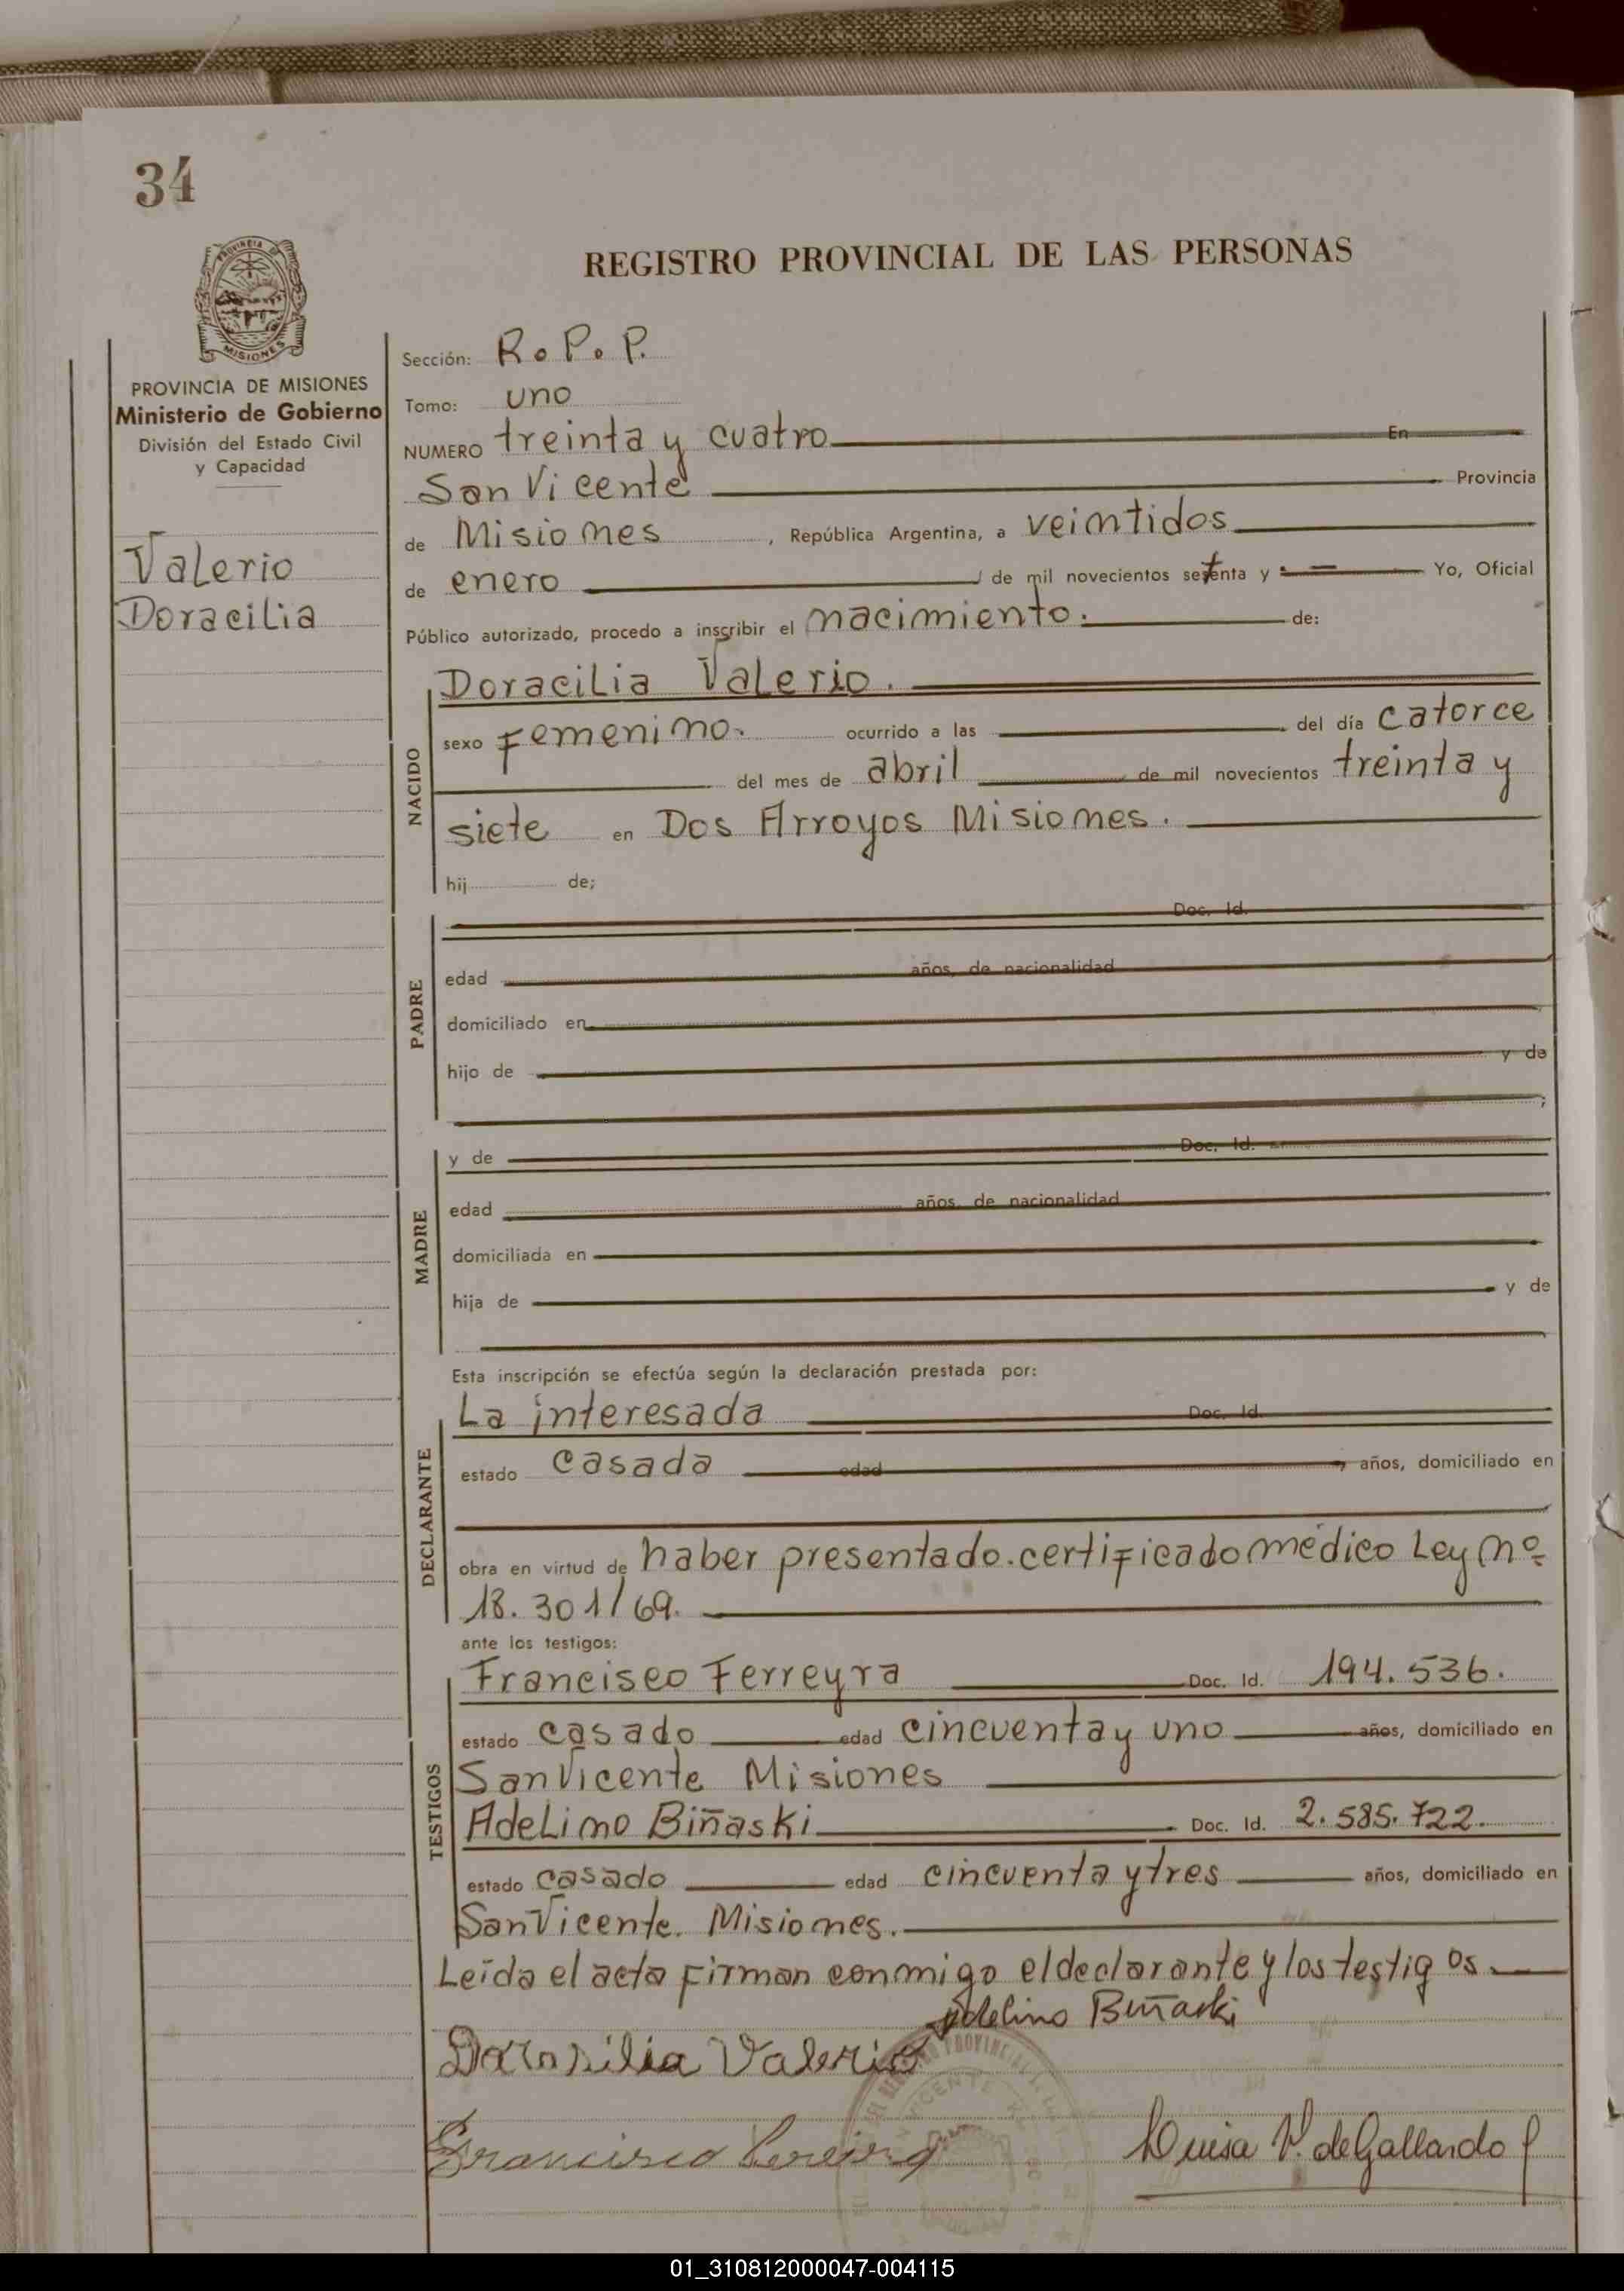 34
REGISTRO PROVINCIAL DE LAS PERSONAS
MISIONES
PROVINCIA DE MISIONES
Ministerio de Gobierno
División del Estado Civil
y Capacidad
Valerio
Doracilia
Sección: R.P.P.
Tomo: uno
NUMERO treinta y cuatro En
San Vicente Provincia
de Misiones, República Argentina, a veintidos
de enero de mil novecientos setenta y Yo, Oficial
Público autorizado, procedo a inscribir el nacimiento. de:
NACIDO
Doracilia Valerio.
sexo Femenino. ocurrido a las del día catorce
del mes de abril de mil novecientos treinta y
siete en Dos Arroyos Misiones.
hij de;
PADRE
Doc. Id.
edad años, de nacionalidad
domiciliado en
hijo de y de
;
MADRE
y de Doc. Id.
edad años, de nacionalidad
domiciliada en
hija de y de
Esta inscripción se efectúa según la declaración prestada por:
DECLARANTE
La interesada Doc. Id.
estado casada edad años, domiciliado en
obra en virtud de haber presentado.certificado médico Ley nº
18.301/69.
ante los testigos:
TESTIGOS
Francisco Ferreyra Doc. Id. 194.536.
estado casado edad cincuenta y uno años, domiciliado en
San Vicente Misiones
Adelino Biñaski Doc. Id. 2.585.722.
estado casado edad cincuenta y tres años, domiciliado en
San Vicente. Misiones.
Leída el acta firman conmigo el declarante y los testigos
Adelino Biñaski
Valerio
Francisco
Luisa V. de Gallardo
01_310812000047-004115